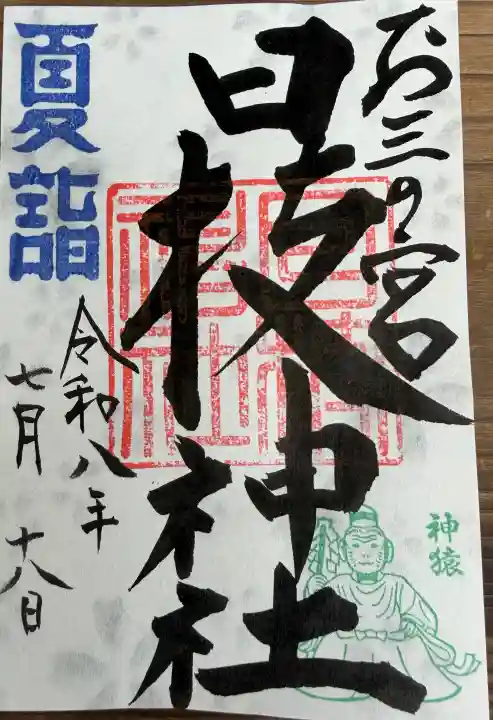 お三の宮
日枝神社
夏詣
令和八年
七月 十八日
神猿